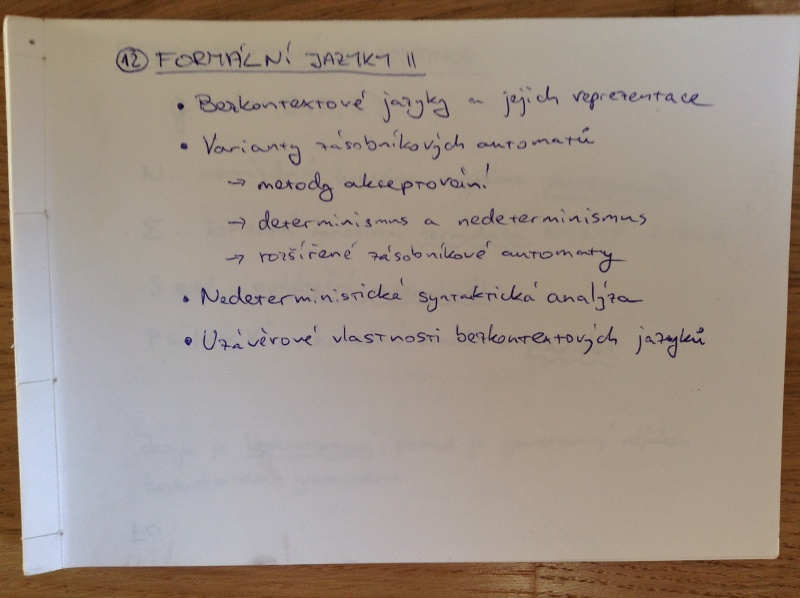 12 FORMÁLNÍ JAZYKY II
• Bezkontextové jazyky a jejich reprezentace
• Varianty zásobníkových automatů
→ metody akceptování
→ determinismus a nedeterminismus
→ rozšířené zásobníkové automaty
• Nedeterministická syntaktická analýza
• Uzávěrové vlastnosti bezkontextových jazyků